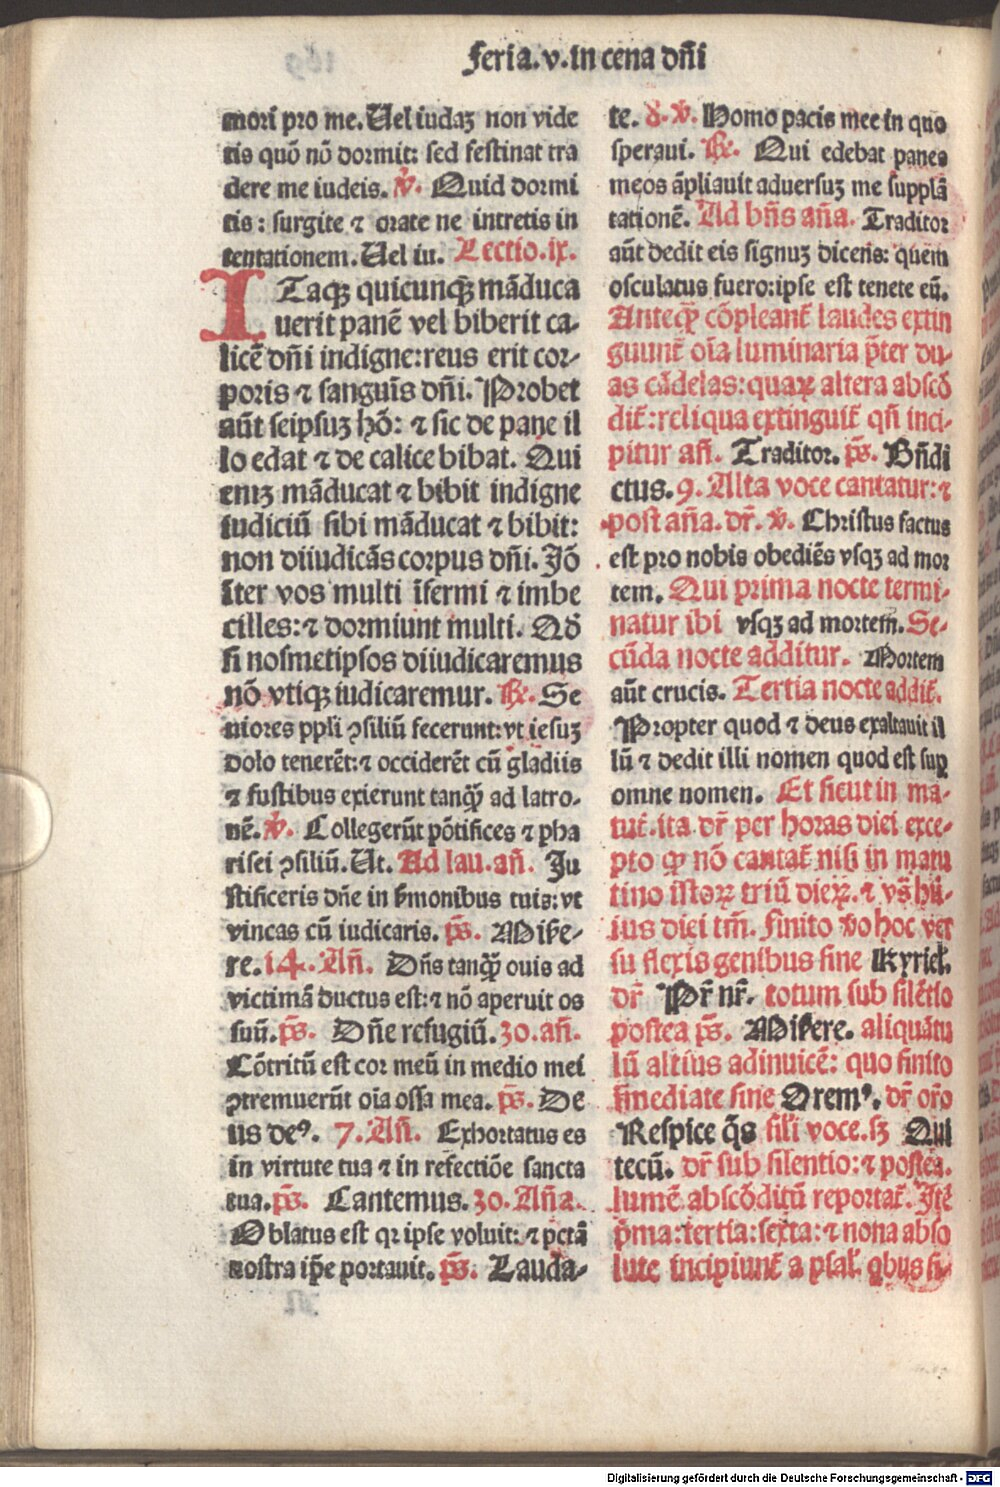 feria.v.in cena dn̄i
mori pro me. Uel iudaȝ non vide
tis quō nō dormit: sed festinat tra
dere me iudeis. v̄. Quid dormi
tis: surgite ⁊ orate ne intretis in
tentationem. Uel iu. Lectio.ix.
ITaqꝫ quicunqꝫ māduca
uerit panē vel biberit ca-
licē dn̄i indigne: reus erit cor-
poris ⁊ sanguīs dn̄i. Probet
aūt seipsuȝ hō: ⁊ sic de pane il
lo edat ⁊ de calice bibat. Qui
eniȝ māducat ⁊ bibit indigne
iudiciū sibi māducat ⁊ bibit:
non diiudicās corpus dn̄i. Jō
īter vos multi īfermi ⁊ imbe
cilles: ⁊ dormiunt multi. Qd̄
si nosmetipsos diiudicaremus
nō vtiqꝫ iudicaremur. R̄. Se
niores ppli ꝯsiliū fecerunt: vt iesuȝ
dolo tenerēt: ⁊ occiderēt cū gladiis
⁊ fustibus exierunt tanqꝫ̄ ad latro-
nē. v̄. Collegerūt pōtifices ⁊ pha
risei ꝯsiliū. Ut. Ad lau. an̄. Ju
stificeris dn̄e in ẜmonibus tuis: vt
vincas cū iudicaris. ps̄. Miẜe-
re. 14. An̄. Dn̄s tanqꝫ̄ ouis ad
victimā ductus est: ⁊ nō aperuit os
suū. ps̄. Dn̄e refugiū. 30. an̄.
Cōtritū est cor meū in medio mei
ꝯtremuerūt oīa ossa mea. ps̄. De
us deꝰ. 7. An̄. Exhortatus es
in virtute tua ⁊ in refectiōe sancta
tua. ps̄. Cantemus. 30. An̄a.
Oblatus est qr ipse voluit: ⁊ pctā
nostra ip̄e portauit. ps̄. Lauda-
te. 8. v̄. Homo pacis mee in quo
speraui. R̄. Qui edebat panes
meos āpliauit aduersuȝ me supplā
tationē. Ad bn̄s an̄a. Traditor
aūt dedit eis signuȝ dicens: quem
osculatus fuero: ipse est tenete eū.
Anteqꝫ̄ cōpleant̄ laudes extin
guunt̄ oīa luminaria p̄ter du-
as cādelas: quaꝝ altera abscō
dit̄: reliqua extinguit̄ qn̄ inci-
pitur an̄. Traditor. ps̄. Bn̄di
ctus. 9. Alta voce cantatur: ⁊
post an̄a. dr̄. v̄. Christus factus
est pro nobis obediēs vsqȝ ad mor
tem. Qui prima nocte termi-
natur ibi vsqȝ ad mortem̄. Se-
cūda nocte additur. Mortem
aūt crucis. Tertia nocte addit̄.
Propter quod ⁊ deus exaltauit il
lū ⁊ dedit illi nomen quod est suꝑ
omne nomen. Et sicut in ma-
tut̄. ita dr̄ per horas diei exce-
pto qꝫ̄ nō cantat̄ nisi in matu
tino istoꝝ triū dieꝝ. ⁊ vs̄ hu-
ius diei tm̄. Finito v̄o hoc ver
su flexis genibus sine Kyriel̄.
dr̄ Pr̄ nr̄. totum sub silētio
postea ps̄. Miẜere. aliquātu
lū altius adinuicē: quo finito
īmediate sine Oremꝰ. dr̄ or̄o
Respice qs̄ sil̄i voce. sȝ Qui
tecū. dr̄ sub silentio: ⁊ postea.
lumē abscōditū reportat̄. Jtē
p̄ma: tertia: sexta: ⁊ nona abso
lute incipiunt̄ a psal̄. qbus fi-
Digitalisierung gefördert durch die Deutsche Forschungsgemeinschaft - DFG